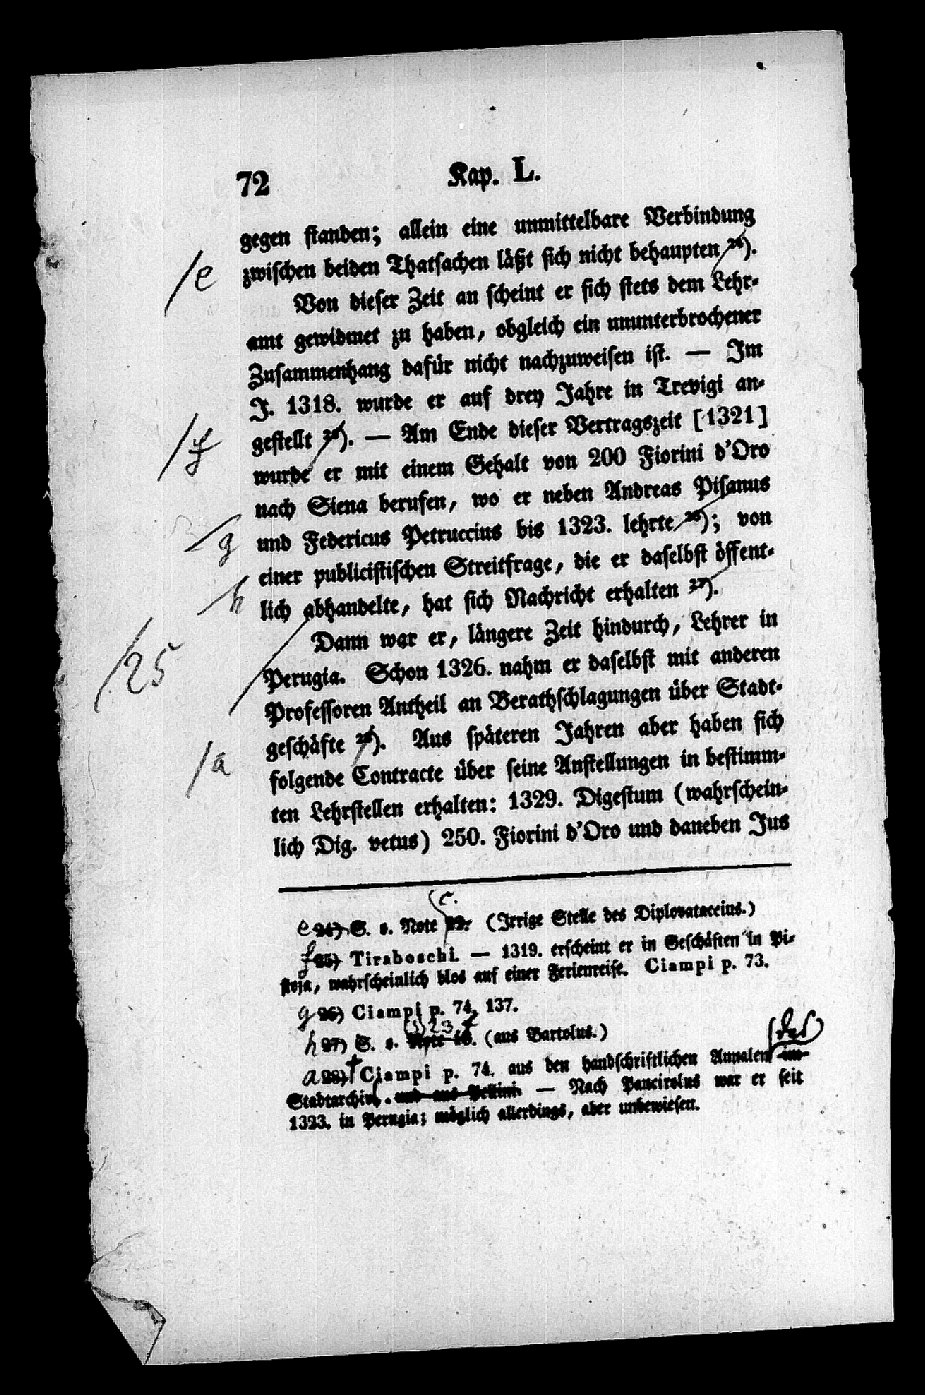 72 Kap. L.
gegen standen; allein eine unmittelbare Verbindung
/e zwischen beiden Thatsachen läßt sich nicht behaupten 24).
Von dieser Zeit an scheint er sich stets dem Lehr-
amt gewidmet zu haben, obgleich ein ununterbrochener
Zusammenhang dafür nicht nachzuweisen ist. — Im
J. 1318. wurde er auf drey Jahre in Trevigi an-
/f gestellt 25). — Am Ende dieser Vertragszeit [1321]
wurde er mit einem Gehalt von 200 Fiorini d'Oro
nach Siena berufen, wo er neben Andreas Pisanus
/g und Federicus Petruccius bis 1323. lehrte 26); von
einer publicistischen Streitfrage, die er daselbst öffent-
/h lich abhandelte, hat sich Nachricht erhalten 27).
Dann war er, längere Zeit hindurch, Lehrer in
/25 Perugia. Schon 1326. nahm er daselbst mit anderen
Professoren Antheil an Berathschlagungen über Stadt-
/a geschäfte 28). Aus späteren Jahren aber haben sich
folgende Contracte über seine Anstellungen in bestimm-
ten Lehrstellen erhalten: 1329. Digestum (wahrschein-
lich Dig. vetus) 250. Fiorini d'Oro und daneben Jus
c.
e 24) S. o. Note 22. (Irrige Stelle des Diplovataccius.)
f 25) Tiraboschi. — 1319. erscheint er in Geschäften in Pi-
stoja, wahrscheinlich blos auf einer Ferienreise. Ciampi p. 73.
g 26) Ciampi p. 74. 137.
h 27) S. o. Note 16. (aus Bartolus.)
a 28) Ciampi p. 74. aus den handschriftlichen Annalen im des
Stadtarchivs. und aus Pellini. — Nach Pancirolus war er seit
1323. in Perugia; möglich allerdings, aber unbewiesen.